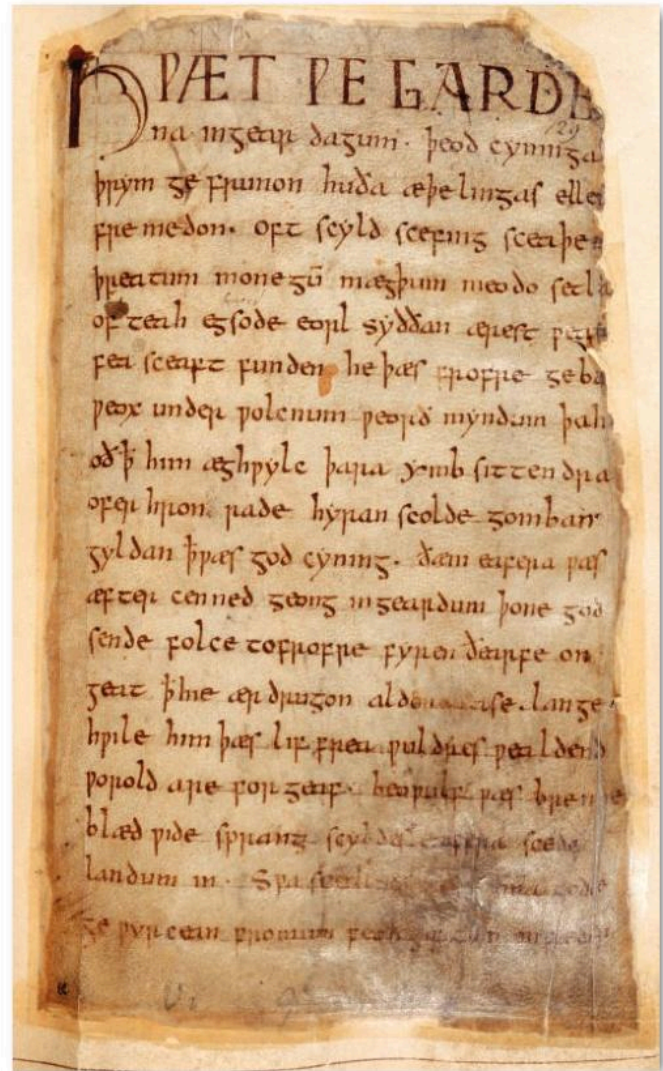 HǷÆT ǷE GARDE
129
na ingear dagum. þeod cyninga
þrym ge frunon huða æþelingas elle
fre medon. oft scyld scefing sceaþe
þreatum monegū mægþum meodo setla
of teah egsode eorl syððan ærest ƿear
fea sceaft funden he þæs frofre geba
ƿeox under ƿolcnum ƿeorð myndum þah
oð ꝥ him æghƿylc þara ymb sittendra
ofer hron rade hyran scolde gomban
gyldan ꝥ ƿæs god cyning. ðæm eafera ƿæs
æfter cenned geong ingeardum þone god
sende folce tofrofre fyren ðearfe on
geat ꝥ hie ær drugon lange
hƿile him þæs lif frea ƿuldres ƿealdend
ƿorold are for geaf. beoƿulf ƿæs breme
blæd ƿide sprang scyldes eafera scede
landum in. Sƿa
ge ƿyrcean fromum